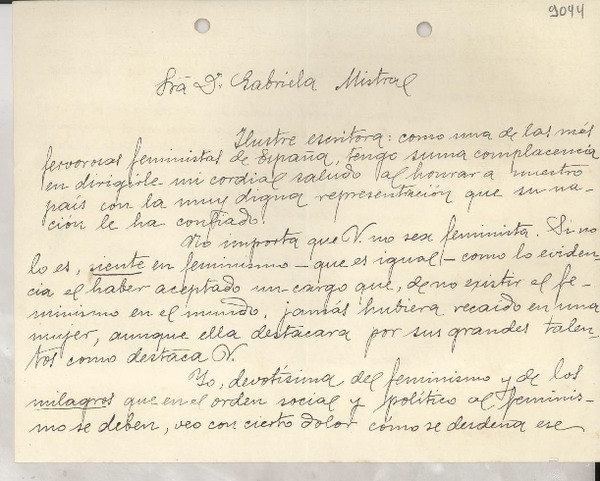 9044
Srã Dª Gabriela Mistral
Ilustre escritora: como una de las más
fervorosas feministas de España, tengo suma complacencia
en dirigirle mi cordial saludo al honrar a nuestro
país con la muy digna representación que su na-
ción le ha confiado.
No importa que V. no sea feminista. Si no
lo es, siente en feminismo - que es igual - como lo eviden-
cia el haber aceptado un cargo que, de no existir el fe-
minismo en el mundo, jamás hubiera recaido en una
mujer, aunque ella destacara por sus grandes talen-
tos como destaca V.
Yo, devotísima del feminismo y de los
milagros que en el orden social y político al feminis-
mo se deben, veo con cierto dolor como se desdeña ese